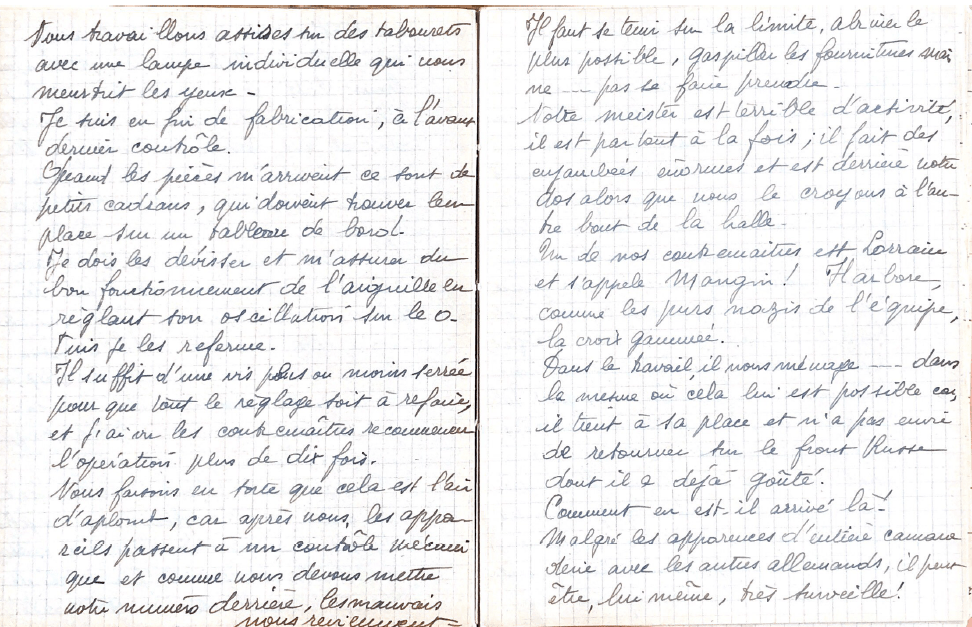 Nous travaillons assises sur des tabourets
avec une lampe individuelle qui nous
meurtrit les yeux -
Je suis en fin de fabrication, à l'avant
dernier contrôle.
Quand les pièces m'arrivent ce sont de
petits cadrans, qui doivent trouver leur
place sur un tableau de bord.
Je dois les dévisser et m'assurer du
bon fonctionnement de l'aiguille en
réglant son oscillation sur le 0-
Puis je les referme.
Il suffit d'une vis plus ou moins serrée
pour que tout le réglage soit à refaire,
et j'ai vu les contremaîtres recommencer
l'opération plus de dix fois.
Nous faisons en sorte que cela est l'air
d'aplomb, car après nous, les appa-
reils passent à un contrôle mécani
que et comme nous devons mettre
notre numéro derrière, les mauvais
nous reviennent -
Il faut se tenir sur la limite, abimer le
plus possible, gaspiller les fournitures mais
ne --- pas se faire prendre -
Notre meister est terrible d'activité,
il est partout à la fois ; il fait des
enjambées énormes et est derrière notre
dos alors que nous le croyons à l'au-
tre bout de la halle -
Un de nos contremaitres est Lorrain
et s'appele Mangin !
comme les purs nazis de l'équipe,
la croix gammée.
Dans le travail il nous ménage --- dans
la mesure où cela lui est possible car
il tient à sa place et n'a pas envie
de retourner sur le front Russe
dont il a déjà goûté.
Comment en est-il arrivé là -
Malgré les apparences d'entière camara
derie avec les autres allemands, il peut
être, lui même, très surveillé !